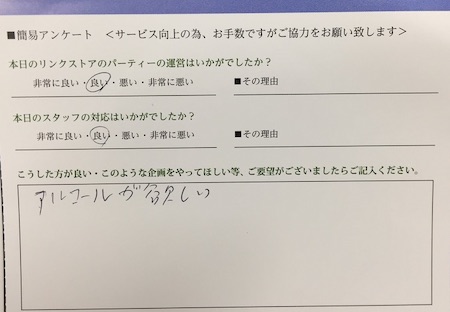 ■簡易アンケート ＜サービス向上の為、お手数ですがご協力をお願い致します＞
本日のリンクストアのパーティーの運営はいかがでしたか？
非常に良い・良い・悪い・非常に悪い ■その理由
本日のスタッフの対応はいかがでしたか？
非常に良い・良い・悪い・非常に悪い ■その理由
こうした方が良い・このような企画をやってほしい等、ご要望がございましたらご記入ください。
アルコールが欲しい